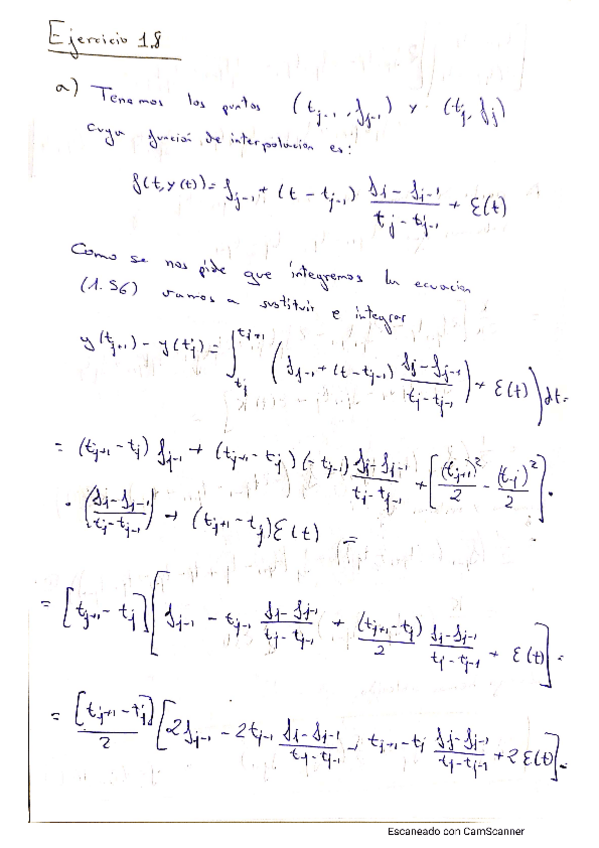 Ejercicio 1.8
a) Tenemos los puntos (t_{j-1}, f_{j-1}) y (t_j, f_j)
cuya función de interpolacion es:
f(t, y(t)) = f_{j-1} + (t - t_{j-1}) \frac{f_j - f_{j-1}}{t_j - t_{j-1}} + ε(t)
Como se nos pide que integremos la ecuacion
(1.56) vamos a sustituir e integrar
y(t_{j+1}) - y(t_j) = \int_{t_j}^{t_{j+1}} ( f_{j-1} + (t - t_{j-1}) \frac{f_j - f_{j-1}}{t_j - t_{j-1}} ) + ε(t) ) dt =
= (t_{j+1} - t_j) f_{j-1} + (t_{j+1} - t_j) (-t_{j-1}) \frac{f_j - f_{j-1}}{t_j - t_{j-1}} + [ \frac{(t_{j+1})^2}{2} - \frac{(t_j)^2}{2} ] ·
· ( \frac{f_j - f_{j-1}}{t_j - t_{j-1}} ) + (t_{j+1} - t_j) ε(t) =
= [t_{j+1} - t_j] [ f_{j-1} - t_{j-1} \frac{f_j - f_{j-1}}{t_j - t_{j-1}} + \frac{(t_{j+1} - t_j)}{2} \frac{f_j - f_{j-1}}{t_j - t_{j-1}} + ε(t) ] =
= \frac{[t_{j+1} - t_j]}{2} [ 2f_{j-1} - 2t_{j-1} \frac{f_j - f_{j-1}}{t_j - t_{j-1}} + t_{j+1} - t_j \frac{f_j - f_{j-1}}{t_j - t_{j-1}} + 2ε(t) ] =
Escaneado con CamScanner